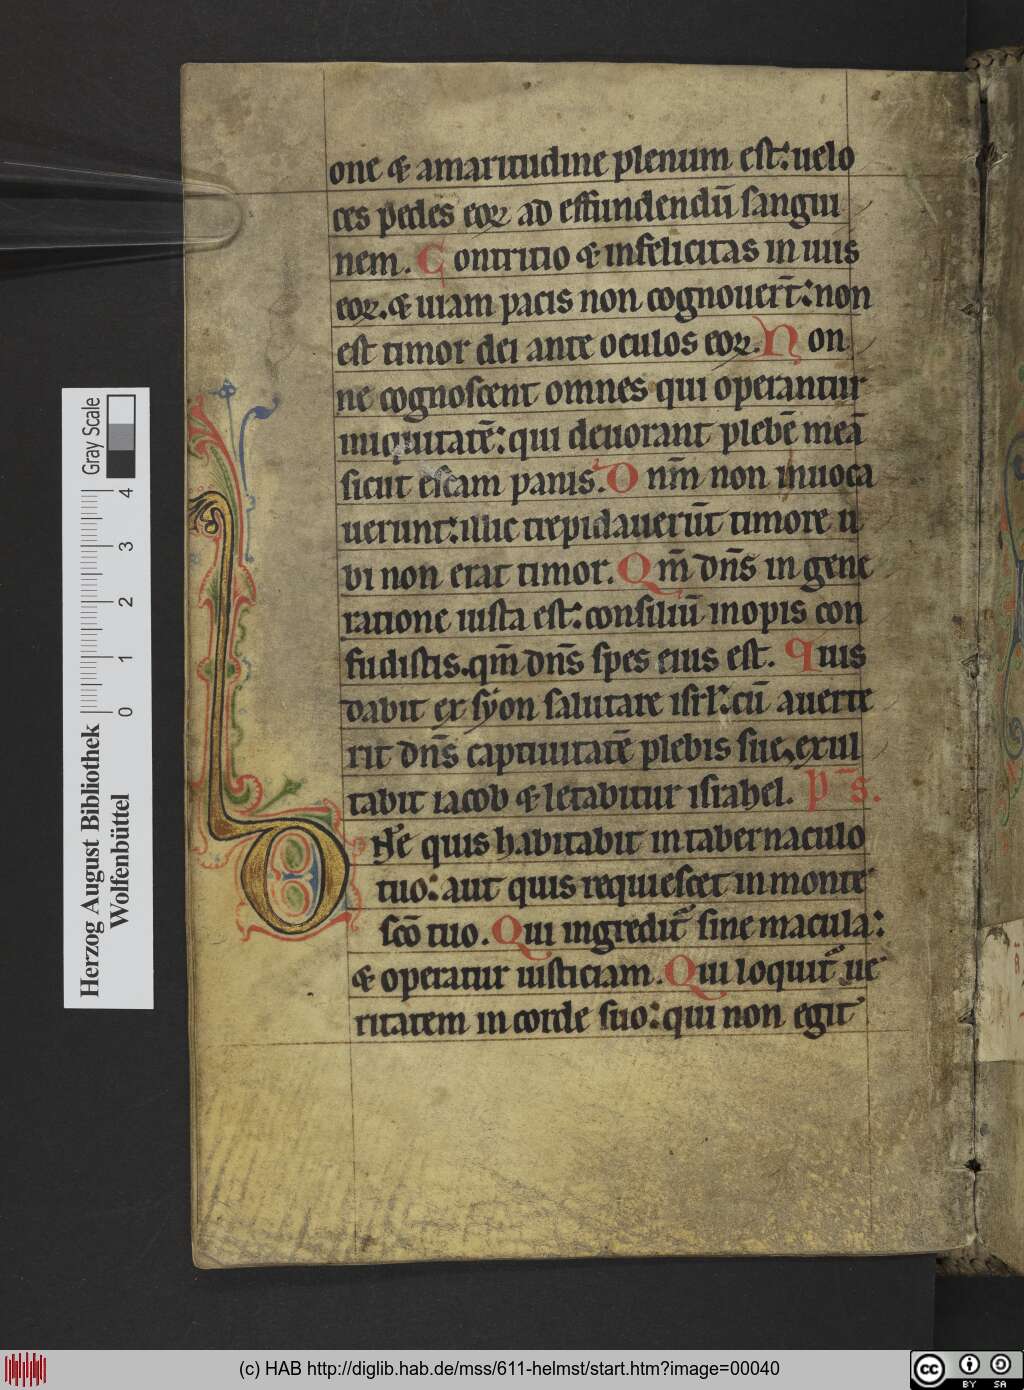 one & amaritudine plenum est: uelo
ces pedes eoꝝ ad effundendū sangui
nem. Contritio & infelicitas in uiis
eoꝝ. & uiam pacis non cognouert̄: non
est timor dei ante oculos eoꝝ. Non
ne cognoscent omnes qui operantur
iniquitatē: qui deuorant plebē meā
sicut escam panis. Dnm̄ non inuoca
uerunt: illic trepidauerūt timore u
bi non erat timor. Qm̄ dn̄s in gene
ratione iusta est: consiliū inopis con
fudistis. qm̄ dn̄s spes eius est. Quis
dabit ex syon salutare isrl̄: cū auerte
rit dn̄s captiuitatē plebis sue, exul
tabit iacob & letabitur israhel. P̄s.
Dn̄e quis habitabit in tabernaculo
tuo: aut quis requiescet in monte
scō tuo. Qui ingredit̄ sine macula:
& operatur iusticiam. Qui loquit̄ ue
ritatem in corde suo: qui non egit
Herzog August Bibliothek
Wolfenbüttel
0 1 2 3 4
Gray Scale
(c) HAB http://diglib.hab.de/mss/611-helmst/start.htm?image=00040
cc BY SA